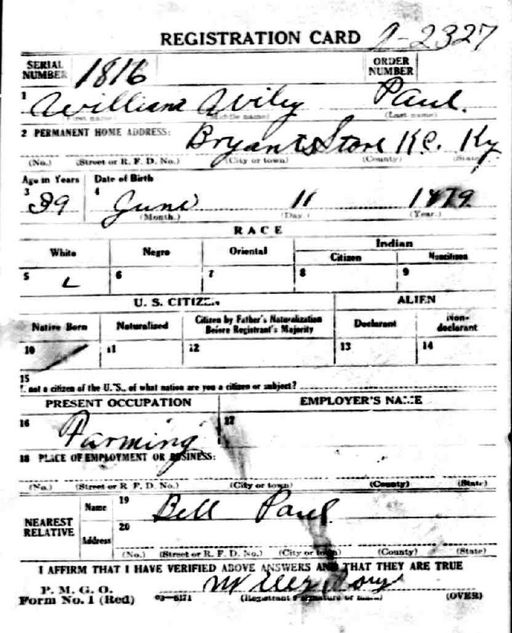 REGISTRATION CARD A-2327
SERIAL NUMBER 1816 ORDER NUMBER
1 William Wiley Paul.
(First name) (Middle name) (Last name)
2 PERMANENT HOME ADDRESS: Bryants Store K.C. Ky
(No.) (Street or R. F. D. No.) (City or town) (County) (State)
Age in Years Date of Birth
3 39 4 June 11 1879
(Month.) (Day.) (Year.)
RACE
White Negro Oriental Indian
Citizen Noncitizen
5 6 7 8 9
U. S. CITIZEN ALIEN
Native Born Naturalized Citizen by Father's Naturalization Before Registrant's Majority Declarant Non-declarant
10 11 12 13 14
15
If not a citizen of the U. S., of what nation are you a citizen or subject?
PRESENT OCCUPATION EMPLOYER'S NAME
16 Farming 17
18 PLACE OF EMPLOYMENT OR BUSINESS:
(No.) (Street or R. F. D. No.) (City or town) (County) (State)
NEAREST RELATIVE Name 19 Bell Paul
Address 20
(No.) (Street or R. F. D. No.) (City or town) (County) (State)
I AFFIRM THAT I HAVE VERIFIED ABOVE ANSWERS AND THAT THEY ARE TRUE
P. M. G. O.
Form No. 1 (Red) 03-6171 (Registrant's signature or mark) (OVER)